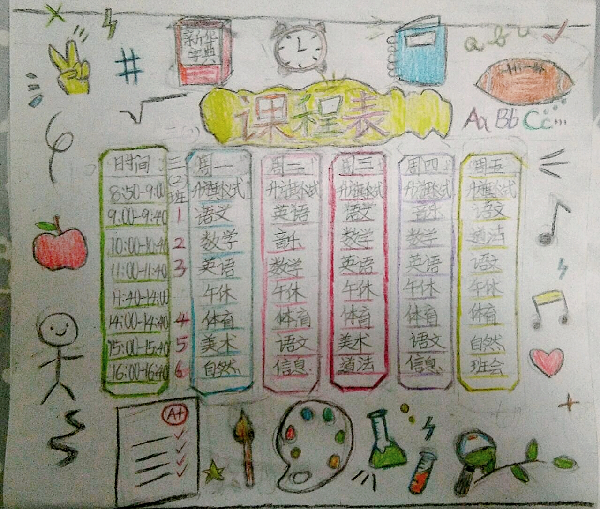 新华
字典
a b u
Hi 一休
Aa Bb Cc...
#
课程表
时间 三〇班 周一 周二 周三 周四 周五
8:50-9:00 升旗仪式 升旗仪式 升旗仪式 升旗仪式
9:00-9:40 1 语文 英语 语文 音乐 语文
10:00-10:40 2 数学 音乐 数学 数学 道法
11:00-11:40 3 英语 数学 英语 英语 语文
11:40-14:00 午休 午休 午休 午休 午休
14:00-14:40 4 体育 体育 体育 体育 体育
15:00-15:40 5 美术 语文 美术 语文 自然
16:00-16:40 6 自然 信息 道法 信息 班会
A+